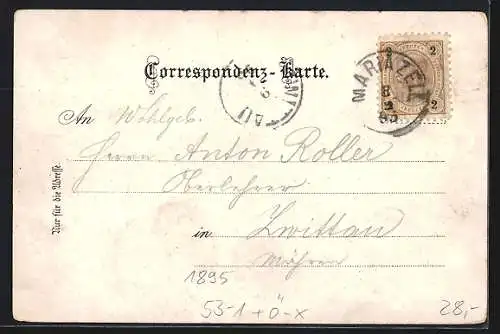 Correspondenz-Karte.
2 2
2 2
MARIAZELL
8
9
95
An Wohlgeb.
Herrn Anton Roller
Oberlehrer
in Zwittau
Mähren
Nur für die Adresse.
1895
53-1+Ö-X
28,-